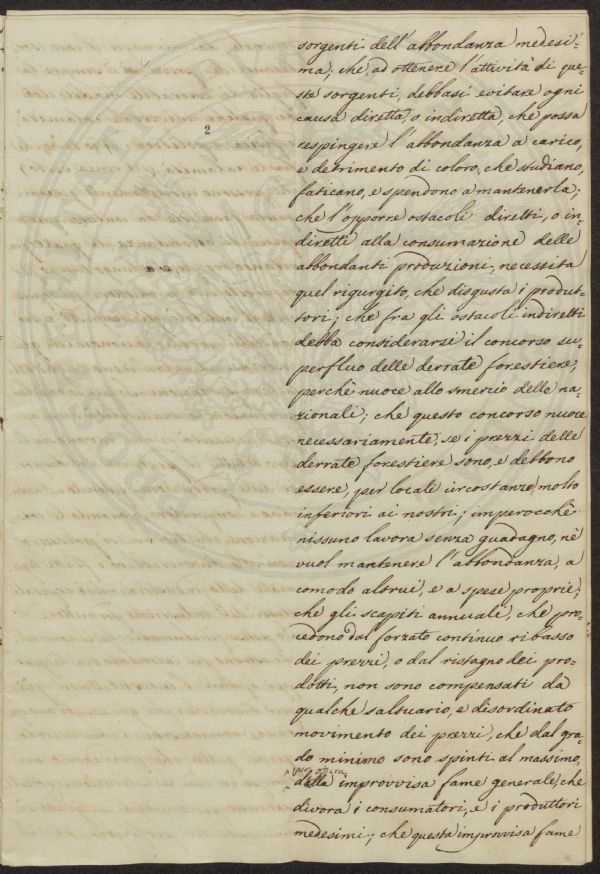 2
sorgenti dell'abbondanza medesi=
ma; che, ad ottenere l'attività di que=
ste sorgenti, debbasi evitare ogni
causa diretta, o indiretta, che possa
respingere l'abbondanza a carico,
e detrimento di coloro, che studiano,
faticano, e spendono a mantenerla;
che l'opporre ostacoli diretti, o in=
diretti alla consumazione delle
abbondanti produzioni, necessita
quel rigurgito, che disgusta i produt=
tori; che fra gli ostacoli indiretti
debba considerarsi il concorso su=
perfluo delle derrate forestiere,
perchè nuoce allo smercio delle na=
zionali; che questo concorso nuoce
necessariamente, se i prezzi delle
derrate forestiere sono, e debbono
essere, per locali circostanze, molto
inferiori ai nostri; imperocchè
nissuno lavora senza guadagno, nè
vuol mantenere l'abbondanza, a
comodo altrui, e a spese proprie;
che gli scapiti annuali, che pro=
cedono dal forzato continuo ribasso
dei prezzi, o dal ristagno dei pro=
dotti, non sono compensati da
qualche saltuario, e disordinato
movimento dei prezzi, che dal gra=
do minimo sono spinti al massimo,
dalla improvvisa fame generale, che
divora i consumatori, e i produttori
medesimi; che questa improvvisa fame